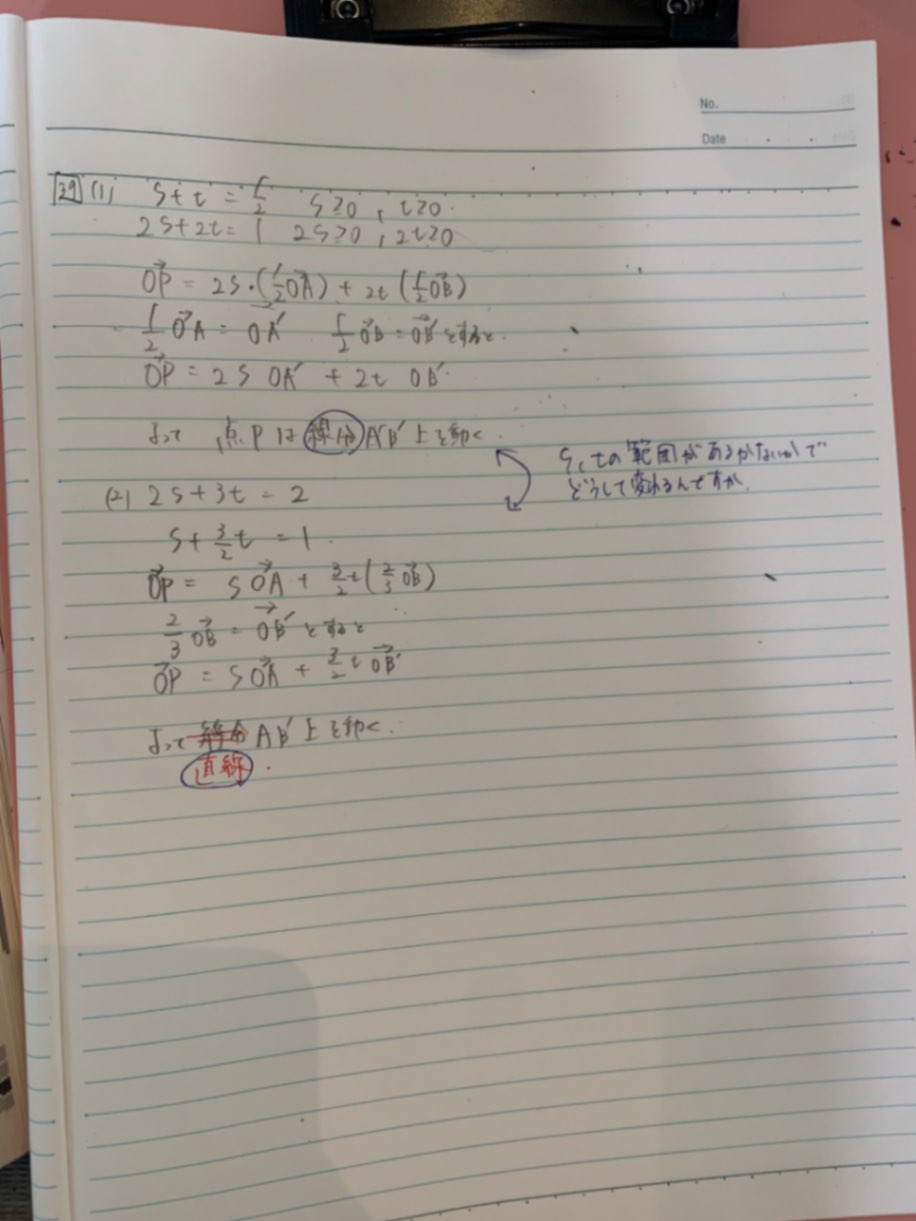 No.
Date
39 (1) s+t = 1/2 s≧0, t≧0.
2s+2t = 1 2s≧0, 2t≧0
OP→ = 2s・(1/2 OA→) + 2t (1/2 OB→)
1/2 OA→ = OA'→ 1/2 OB→ = OB'→ とすると.
OP→ = 2s OA' + 2t OB'.
よって 点P は 線分 A'B' 上を動く.
s, t の 範囲があるかないかで
どうして変わるんですか.
(2) 2s+3t = 2
s+3/2 t = 1.
OP→ = s OA→ + 3/2 t (2/3 OB→)
2/3 OB→ = OB'→ とすると
OP→ = s OA→ + 3/2 t OB'→
よって 線分 AB' 上を動く.
直線.